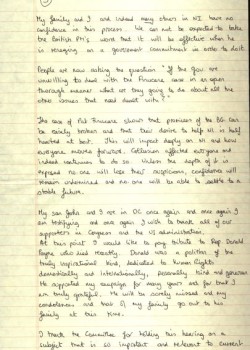 My family and I and indeed many others in NI have no
confidence in this process. We can not be expected to take
the British PM's word that it will be effective when he
is reneging on a government commitment in order to do it.
People are now asking the question "If the Gov are
unwilling to deal with the Finucane case in an open
thorough manner what are they going to do about all the
other issues that need dealt with".
The case of Pat Finucane shows that promises of the BG can
be easily broken and that their desire to tell all is half
hearted at best. This will impact deeply on NI and how
everyone moves forward. Collusion affected everyone and
indeed continues to do so. Unless the depth of it is
exposed no one will lose their suspicions, confidence will
remain undermined and no one will be able to settle to a
stable future.
My son John and I are in DC once again and once again I
am testifying and once again I wish to thank all of our
supporters in Congress and the US administration.
At this point I would like to pay tribute to Rep. Donald
Payne who died recently. Donald was a politician of the
truly inspirational kind, dedicated to Human Rights
domestically and internationally, personally kind and generous.
He supported my campaign for many years and for that I
am truly grateful. He will be sorely missed and my
condolences and that of my family go out to his
family at this time.
I thank the Committee for holding this hearing on a
subject that is so important and relevant to current